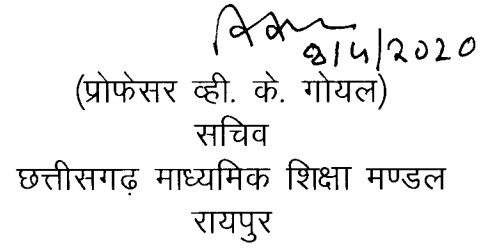 8/5/2020
(प्रोफेसर व्ही. के. गोयल)
सचिव
छत्तीसगढ़ माध्यमिक शिक्षा मण्डल
रायपुर